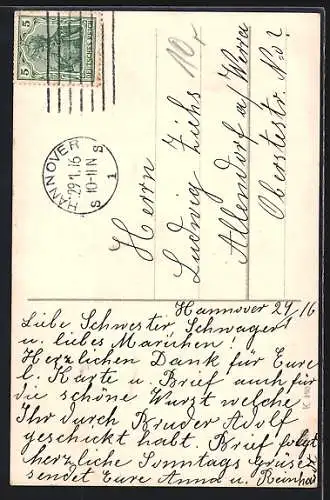 5 5
DEUTSCHES REICH
HANNOVER
29.1.16
10-11 N
S S
1
10
Herrn
Ludwig
Allendorf a/Werra
Oberstestr. No 2
Hannover 29/1 16
Liebe Schwester, Schwager
u. liebes Mariechen!
Herzlichen Dank für Eure
l. Karte u. Brief auch für
die schöne Wurst welche
Ihr durch Bruder Adolf
geschickt habt. Brief folgt
herzliche Sonntags Grüsse
sendet Eure Anna u. Reinhard